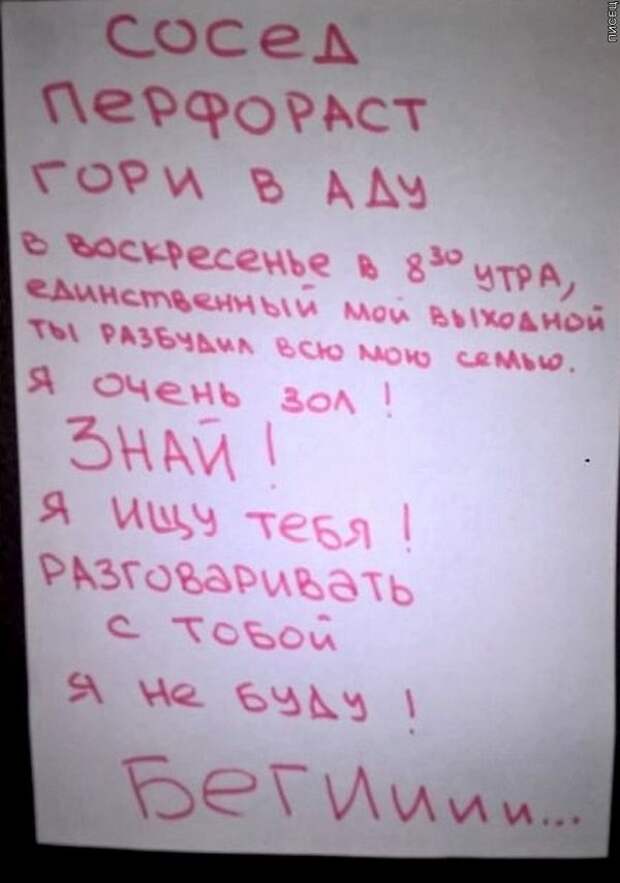 СОСЕД
ПЕРФОРАСТ
ГОРИ В АДУ
В ВОСКРЕСЕНЬЕ В 8³⁰ УТРА,
ЕДИНСТВЕННЫЙ МОЙ ВЫХОДНОЙ
ТЫ РАЗБУДИЛ ВСЮ МОЮ СЕМЬЮ.
Я ОЧЕНЬ ЗОЛ!
ЗНАЙ!
Я ИЩУ ТЕБЯ!
РАЗГОВАРИВАТЬ
С ТОБОЙ
Я НЕ БУДУ!
БЕГИИИИ...
ПИСЕЦ